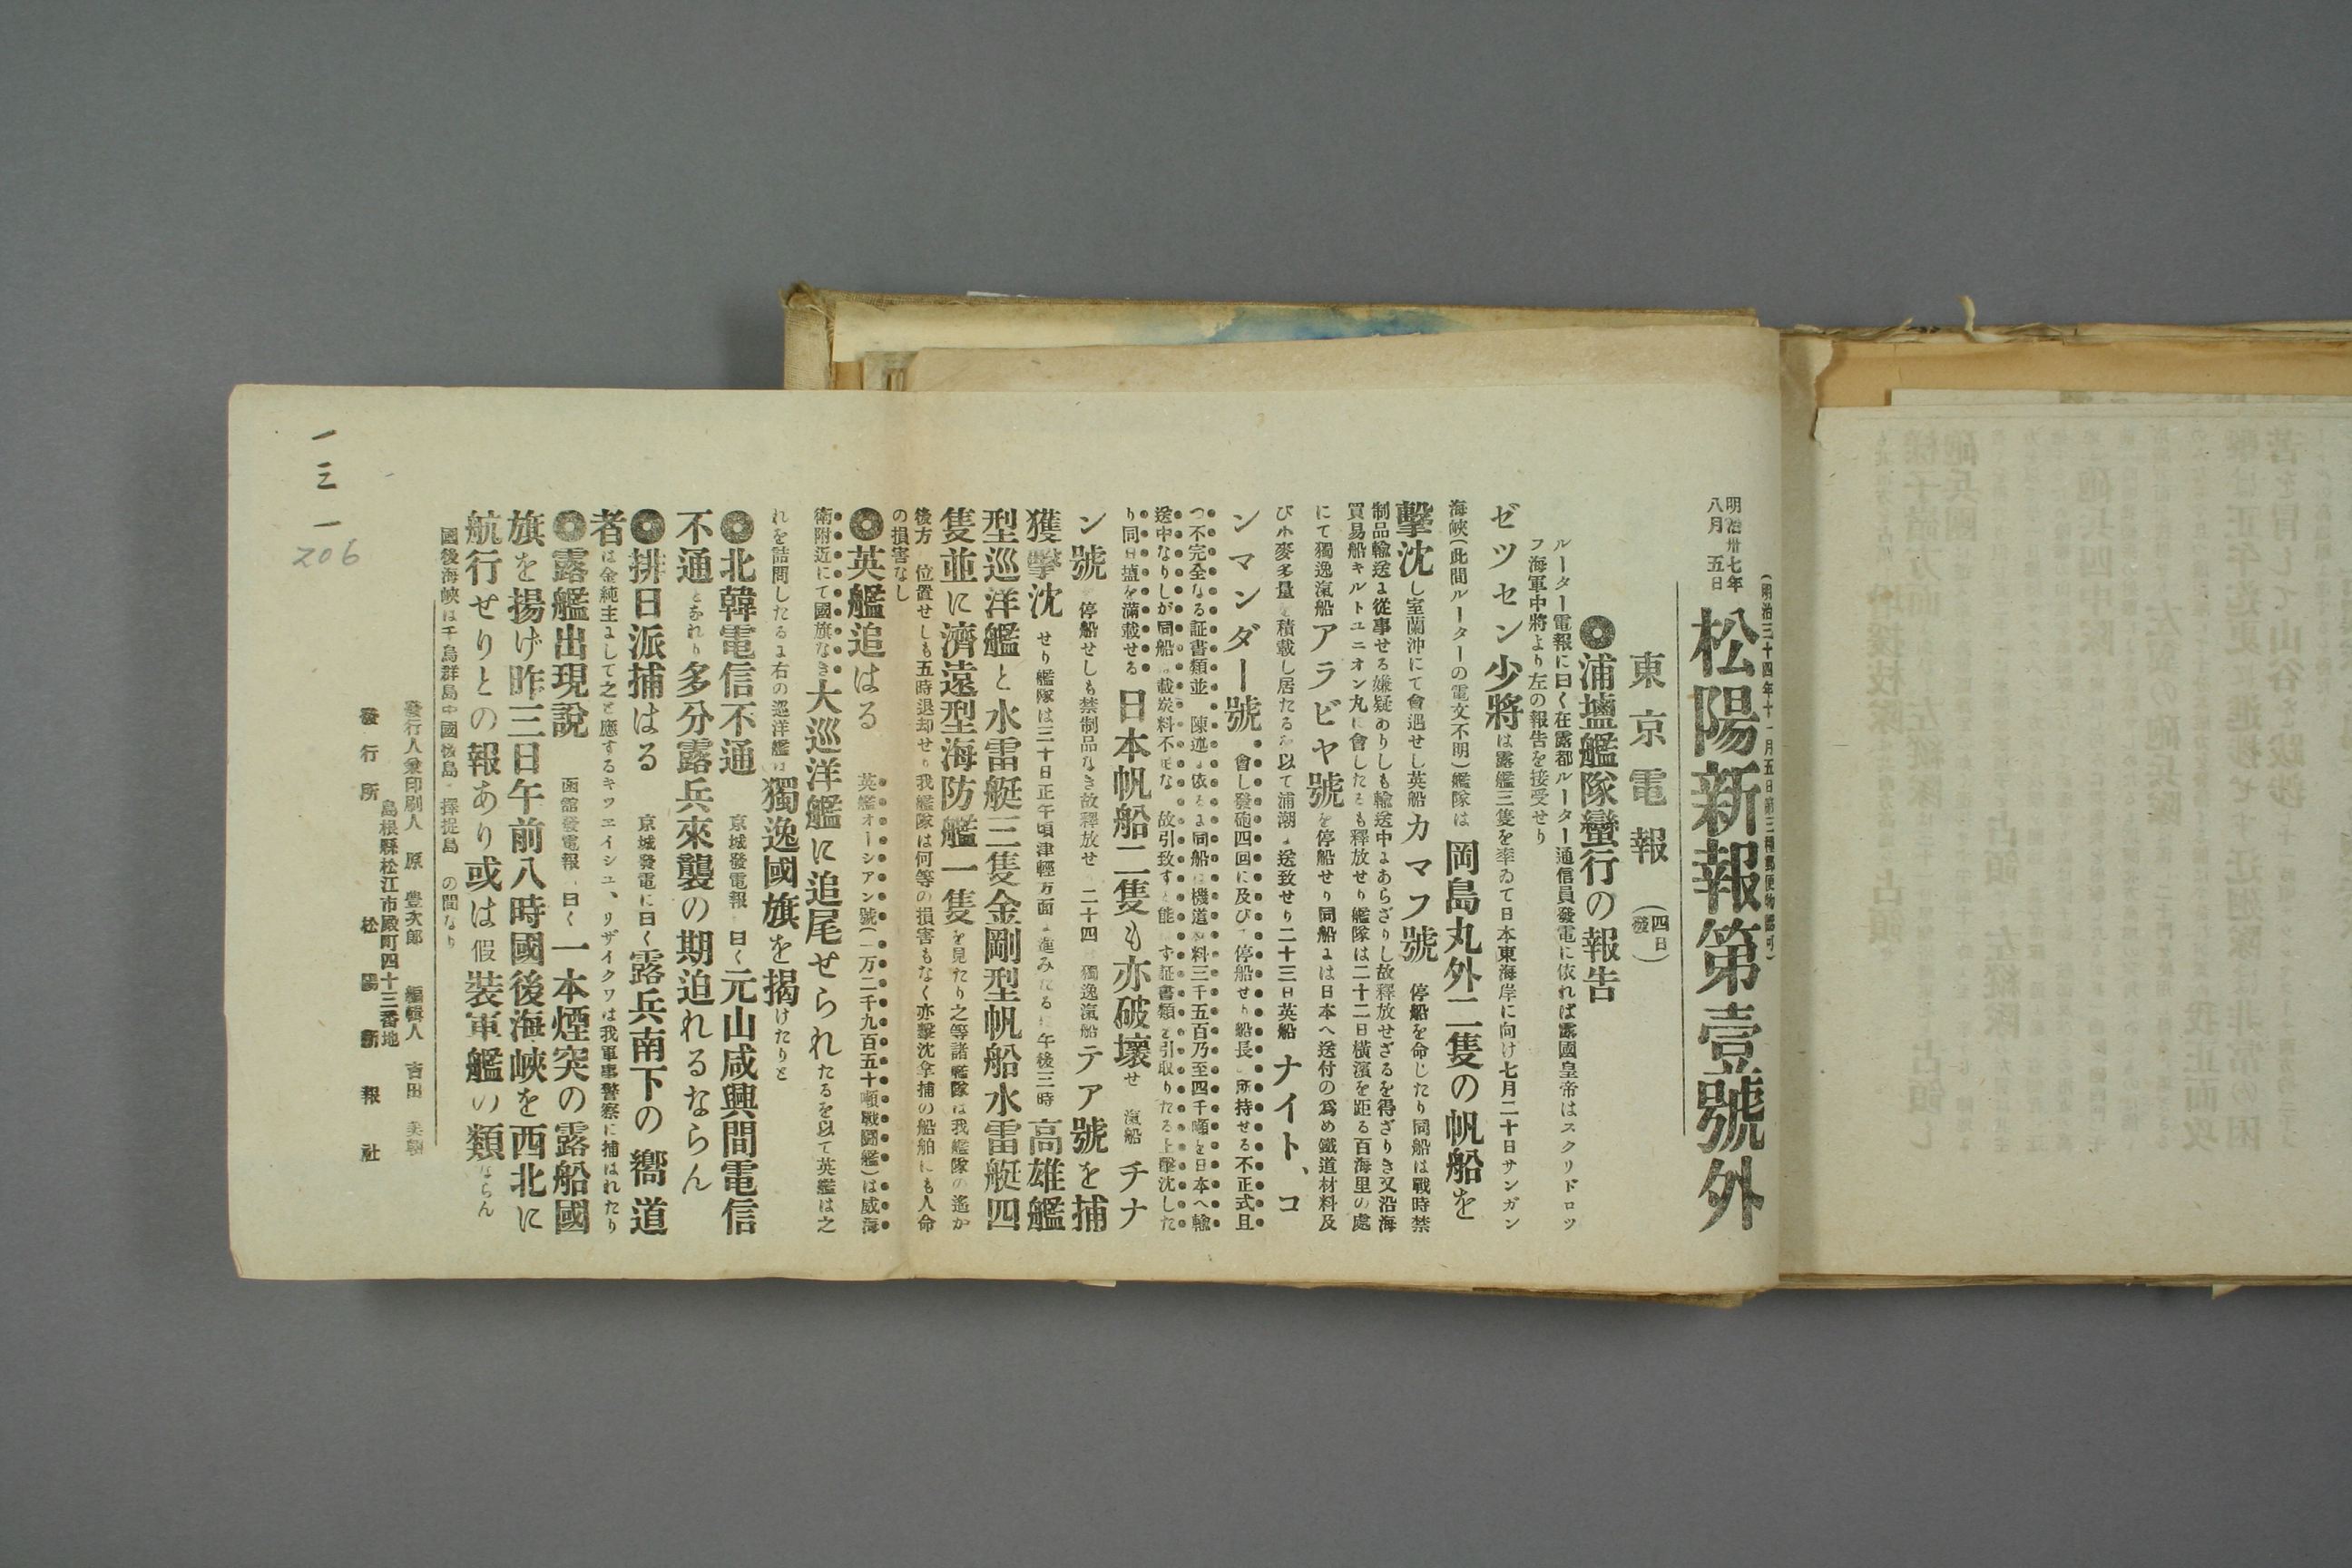 (明治三十四年十一月五日第三種郵便物認可)
明治卅七年
八月五日
松陽新報第壹號外
東京電報
(四日發)
◎浦塩艦隊蠻行の報告
ルーター電報に曰く在露都ルーター通信員發電に依れば露國皇帝はスクリドロッ
フ海軍中將より左の報告を接受せり
ゼッセン少將は露艦三隻を率ゐて日本東海岸に向け七月二十日サンガン
海峽(此間ルーターの電文不明)艦隊は岡島丸外二隻の帆船を
擊沈し室蘭沖にて會遇せし英船カマフ號停船を命じたり同船は戰時禁
制品輸送に從事せる嫌疑ありしも輸送中にあらざりし故釋放せざるを得ざりき又沿海
買易船キルトユニオン丸に會したるも釋放せり艦隊は二十二日橫濱を距る百海里の處
にて獨逸滊船アラビヤ號を停船せり同船には日本へ送付の爲め鐵道材料及
び小麥多量を積載し居たるを以て浦潮に送致せり二十三日英船ナイト、コ
ンマンダー號會し發砲四回に及びて停船せり船長の所持せる不正式且
つ不完全なる証書類並陳述に依るに同船は機道材料三千五百乃至四千噸を日本へ輸
送中なりしが同船は載炭料不足な故引致すと能す証書類を引取りたる上擊沈した
り同日塩を滿載せる日本帆船二隻も亦破壞せ滊船チナ
ン號停船せしも禁制品なき故釋放せ二十四獨逸滊船テア號を捕
獲擊沈せり艦隊は三十日正午頃津輕方面に進みたるに午後三時高雄艦
型巡洋艦と水雷艇三隻金剛型帆船水雷艇四
隻並に濟遠型海防艦一隻を見たり之等諸艦隊は我艦隊の遙か
後方位置せしも五時退却せり我艦隊は何等の損害もなく亦擊沈拿捕の船舶にも人命
の損害なし
◎英艦追はる英艦オーシアン號(一万二千九百五十噸戰鬪艦)は威海
衛附近にて國旗なき大巡洋艦に追尾せられたるを以て英艦は之
れを詰問したるに右の巡洋艦は獨逸國旗を揭げたりと
◎北韓電信不通京城發電報曰く元山咸興間電信
不通となれり多分露兵來襲の期迫れるならん
◎排日派捕はる京城發電に曰く露兵南下の嚮道
者は金純主にして之と應するキツエイシユ、リザイクワは我軍事警察に捕はれたり
◎露艦出現說函館發電報曰く一本煙突の露船國
旗を揚げ昨三日午前八時國後海峽を西北に
航行せりとの報あり或は假裝軍艦の類ならん
國後海峽は千島群島中國後島擇捉島の間なり
發行人兼印刷人原豊次郎編輯人吉田美朝
島根縣松江市殿町四十三番地
發行所松陽新報社
一三一
206